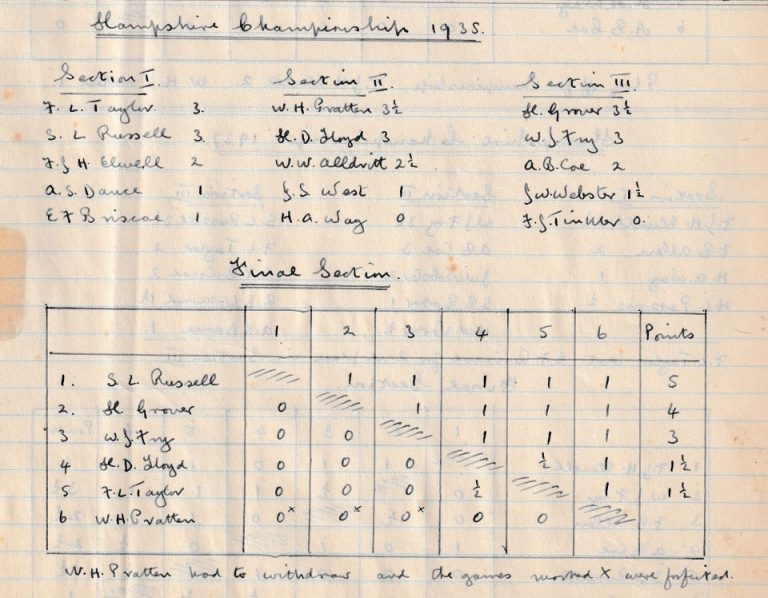 Hampshire Championship 1935.
Section I. Section II. Section III.
F. L. Taylor 3. W. H. Pratten 3½ H. Grover 3½
S. L. Russell 3. H. D. Lloyd 3 W.J. Fry 3
F. J. H. Elwell 2 W. W. Alldritt 2½ A. B. Coe 2
A. S. Dance 1 J. S. West 1 J.W. Webster 1½
E F Briscoe 1 H. A. Way 0 F. J. Tinkler 0.
Final Section.
1 2 3 4 5 6 Points
1. S L Russell 1 1 1 1 1 5
2. H. Grover 0 1 1 1 1 4
3 W. J. Fry 0 0 1 1 1 3
4 H. D. Lloyd 0 0 0 ½ 1 1½
5 F. L. Taylor 0 0 0 ½ 1 1½
6 W. H. Pratten 0x 0x 0x 0 0
W. H. Pratten had to withdraw and the games marked X were forfeited.